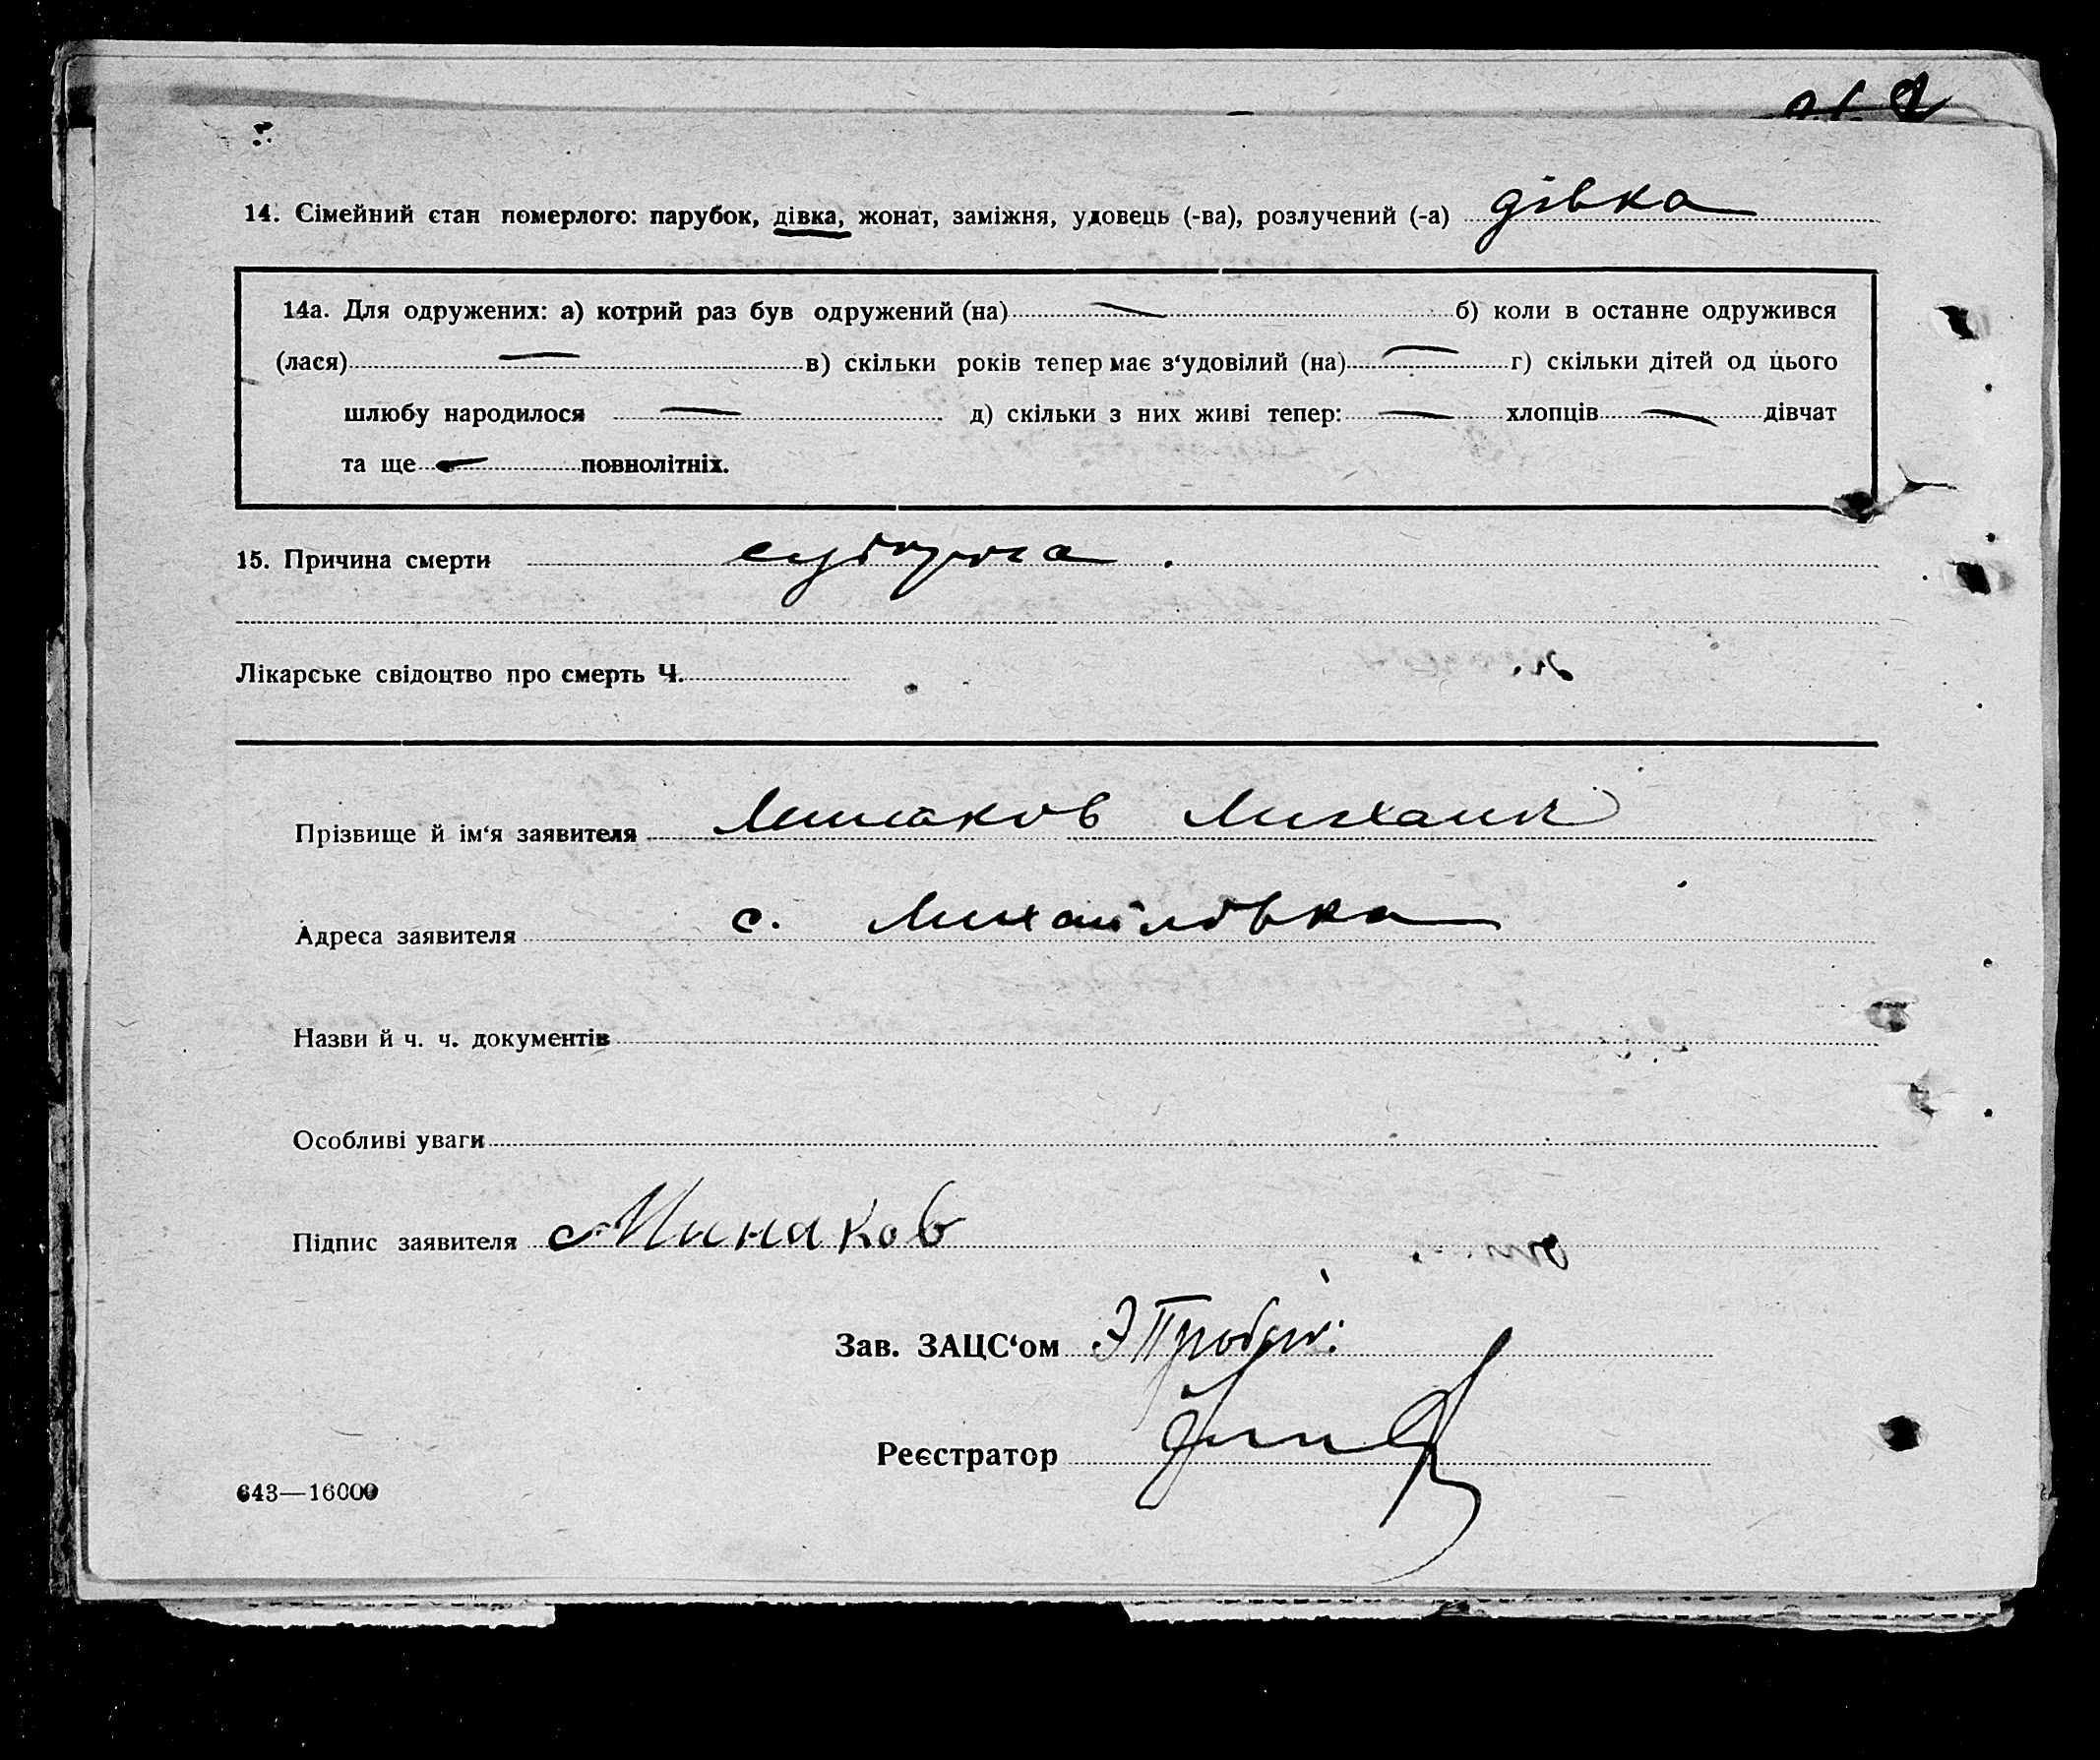 14. Сімейний стан померлого: парубок, дівка, жонат, заміжня, удовець (-ва), розлучений (-а) дівка
14а. Для одружених: а) котрий раз був одружений (на) — б) коли в останне одружився
(лася) — в) скільки років тепер має з‘удовілий (на) — г) скільки дітей од цього
шлюбу народилося — д) скільки з них живі тепер: — хлопців — дівчат
та ще — повнолітніх.
15. Причина смерти
Лікарське свідоцтво про смерть Ч.
Прізвище й ім‘я заявителя Минаков Михаил
Адреса заявителя с. Михайлівка
Назви й ч. ч. документів
Особливі уваги
Підпис заявителя Минаков
Зав. ЗАЦС‘ом
Реєстратор
643—16000